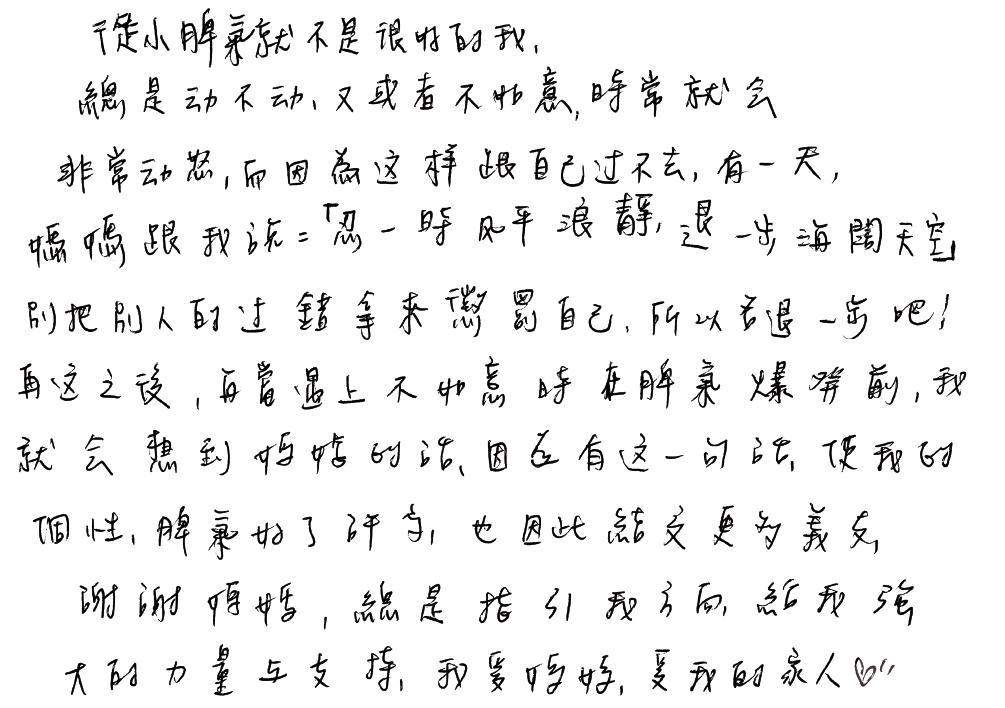 從小脾氣就不是很好的我,
總是动不动、又或者不如意,時常就会
非常动怒,而因為这样跟自己过不去,有一天,
媽媽跟我說=「忍一時风平浪靜,退一步海闊天空」
別把別人的过錯拿來懲罰自己,所以君退一步吧!
再这之後,再當遇上不如意時在脾氣爆發前,我
就会想到媽媽的話、因為有这一句話,使我的
個性,脾氣好了許多,也因此結交更多義友,
謝謝媽媽,總是指引我方向,給我強
大的力量与支持,我爱媽媽,爱我的家人♡"